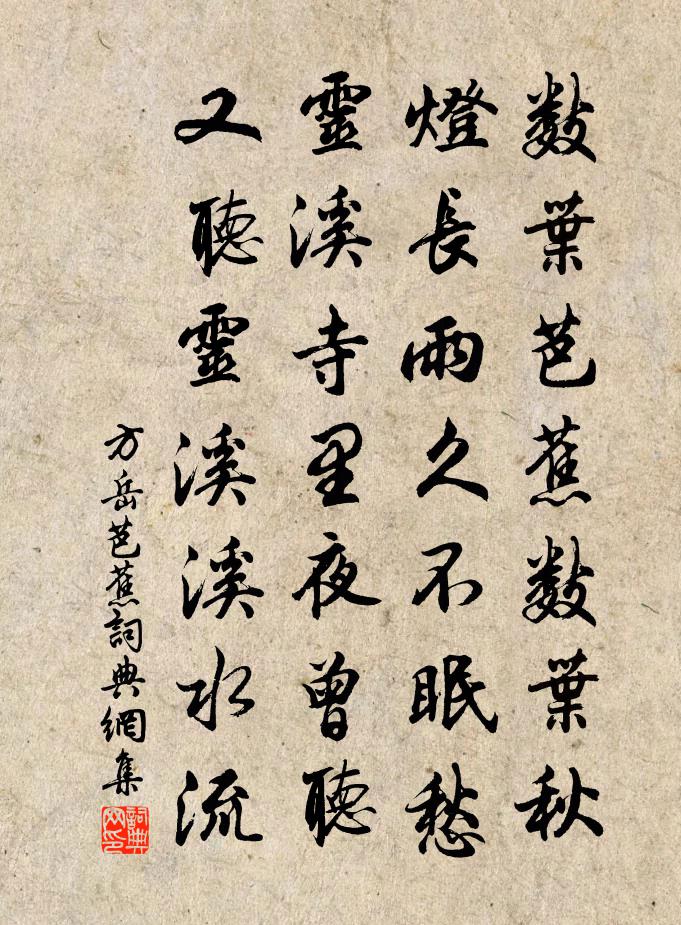 數葉芭蕉數葉秋
燈長雨久不眠愁
靈溪寺里夜曾聽
又聽靈溪溪水流
方岳芭蕉詞典網集
詞典網印